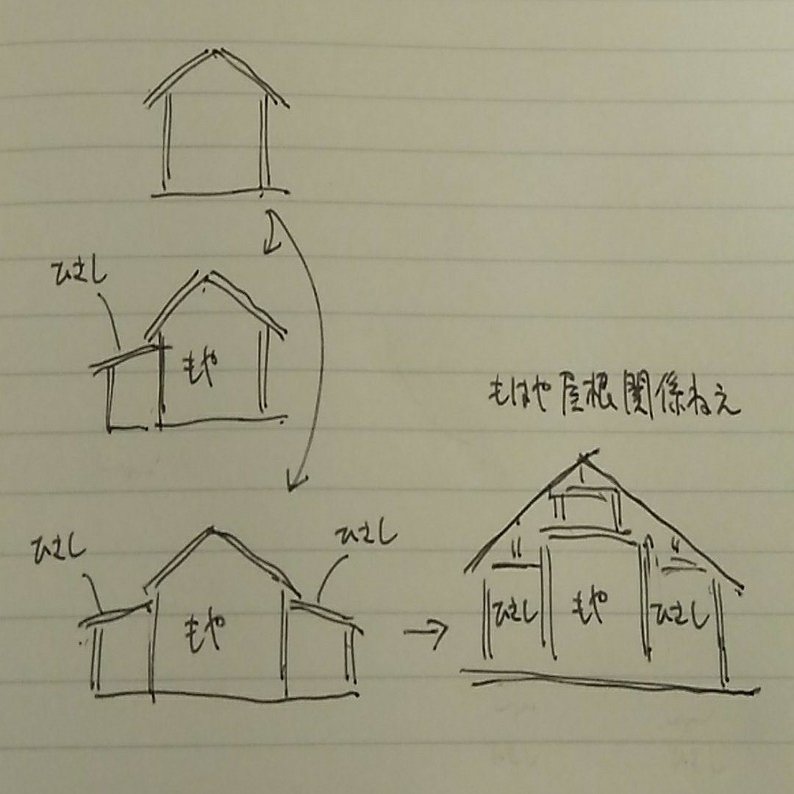 ひさし
もや
もはや屋根関係ねえ
ひさし
もや
ひさし
ひさし
もや
ひさし